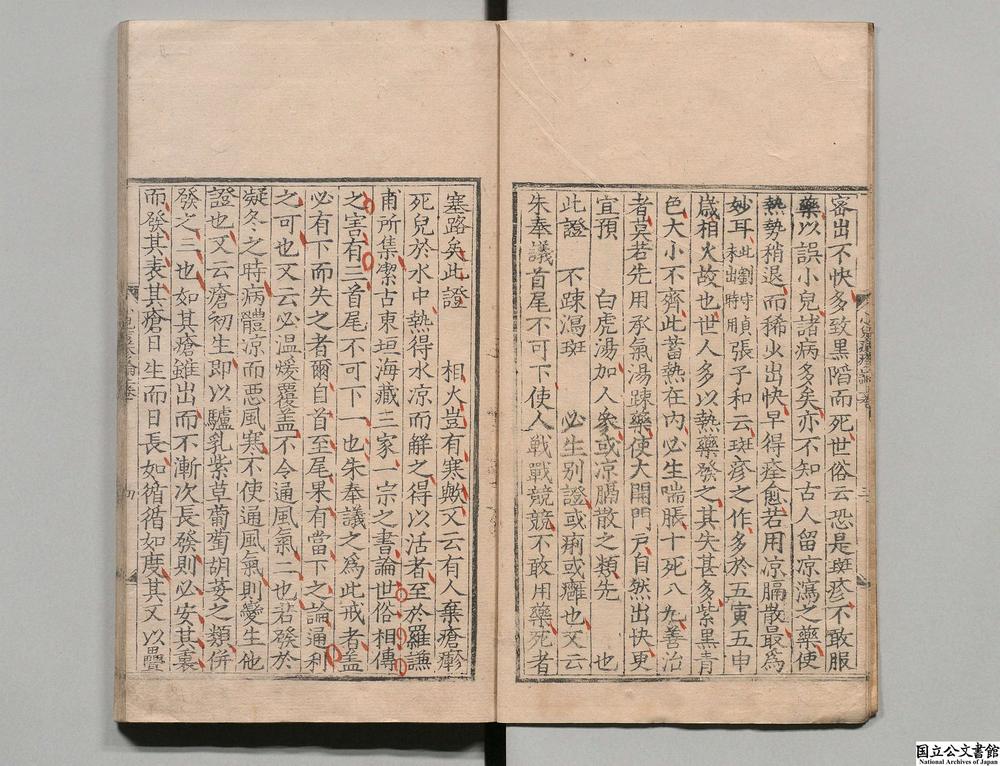 密出不快多致黒陷而死世俗云恐是斑疹不敢服
藥以誤小兒諸病多矣亦不知古人留凉瀉之藥使
熱勢稍退而稀少出快早得痊愈若用凉膈散最爲
妙耳此劉守眞張子和云斑疹之作多於五寅五申
未出時用
歳相火故也世人多以熱藥發之其失甚多紫黒青
色大小不齊此蓄熱在内必生喘脹十死八九善治
者莫若先用承氣湯踈藥使大開門戸自然出快更
宜預 白虎湯加人參或凉膈散之類先 也
此證 不踈瀉斑 必生别證或痢或癰也又云
朱奉議首尾不可下使人戰戰競競不敢用藥死者
塞路矣此證 相火豈有寒歟又云有人棄瘡疹
死兒於水中熱得水凉而解之得以活者至於羅謙
甫所集潔古東垣海藏三家一宗之書論世俗相傳
之害有三首尾不可下一也朱奉議之爲此戒者盖
必有下而失之者爾自首至尾果有當下之論通利
之可也又云必温煖覆盖不令通風氣二也若發於
凝冬之時病體凉而悪風寒不使通風氣則變生他
證也又云瘡初生即以驢乳紫草葡萄胡荽之類併
發之三也如其瘡雖出而不漸次長發則必安其裏
而發其表其瘡日生而日長如循循如度其又以疊
国立公文書館
National Archives of Japan